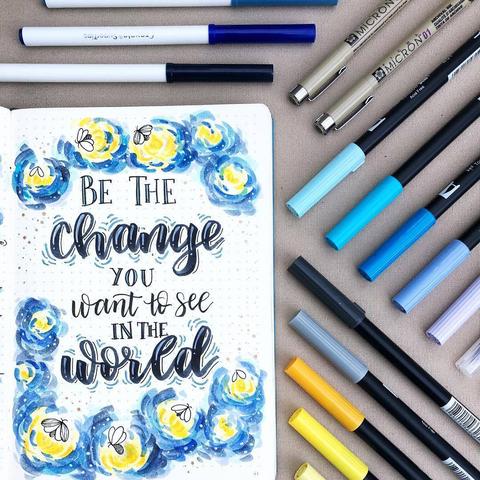 Crayola SuperTips
MICRON
MICRON 01
BE THE
change
YOU
want to see
IN THE
world